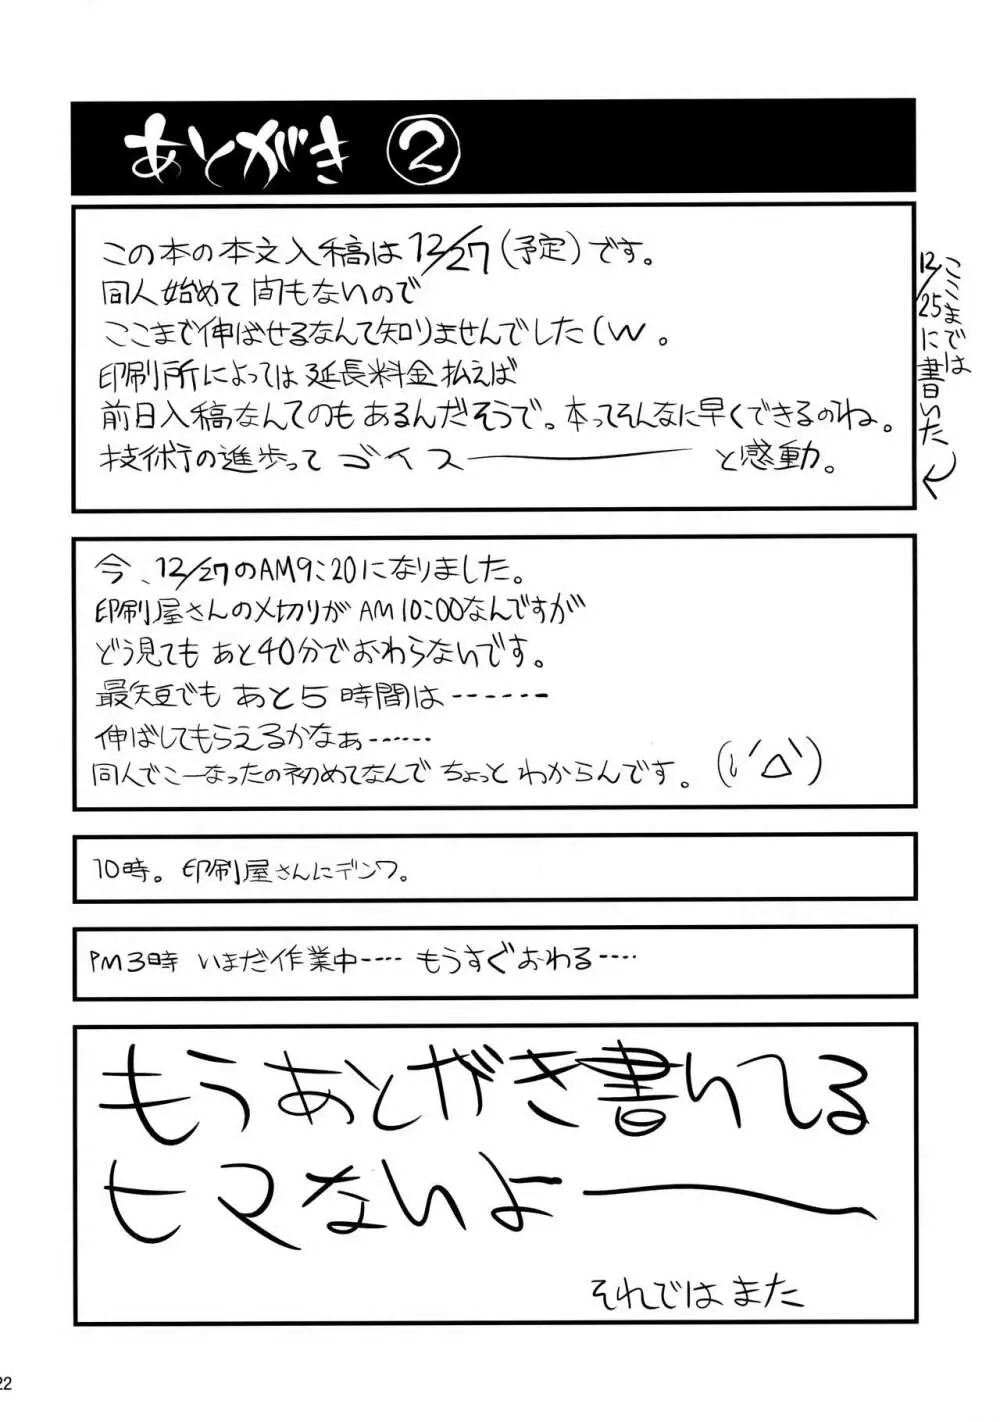 あとがき ②
この本の本文入稿は12/27(予定)です。
同人始めて間もないので
ここまで伸ばせるなんて知りませんでした(w。
印刷所によっては延長料金払えば
前日入稿なんてのもあるんだそうで。本ってそんなに早くできるのね。
技術の進歩ってゴイスーーーーーーと感動。
ここまでは
12/25に書いた
今、12/27のAM9:20になりました。
印刷屋さんの〆切りがAM10:00なんですが
どう見てもあと40分でおわらないです。
最短でもあと5時間は‥‥‥
伸ばしてもらえるかなぁ‥‥‥
同人でこーなったの初めてなんでちょっとわからんです。(;´Д`)
10時。印刷屋さんにデンワ。
PM3時 いまだ作業中‥‥ もうすぐおわる‥‥
もうあとがき書いてる
ヒマないよーーー
それではまた
22